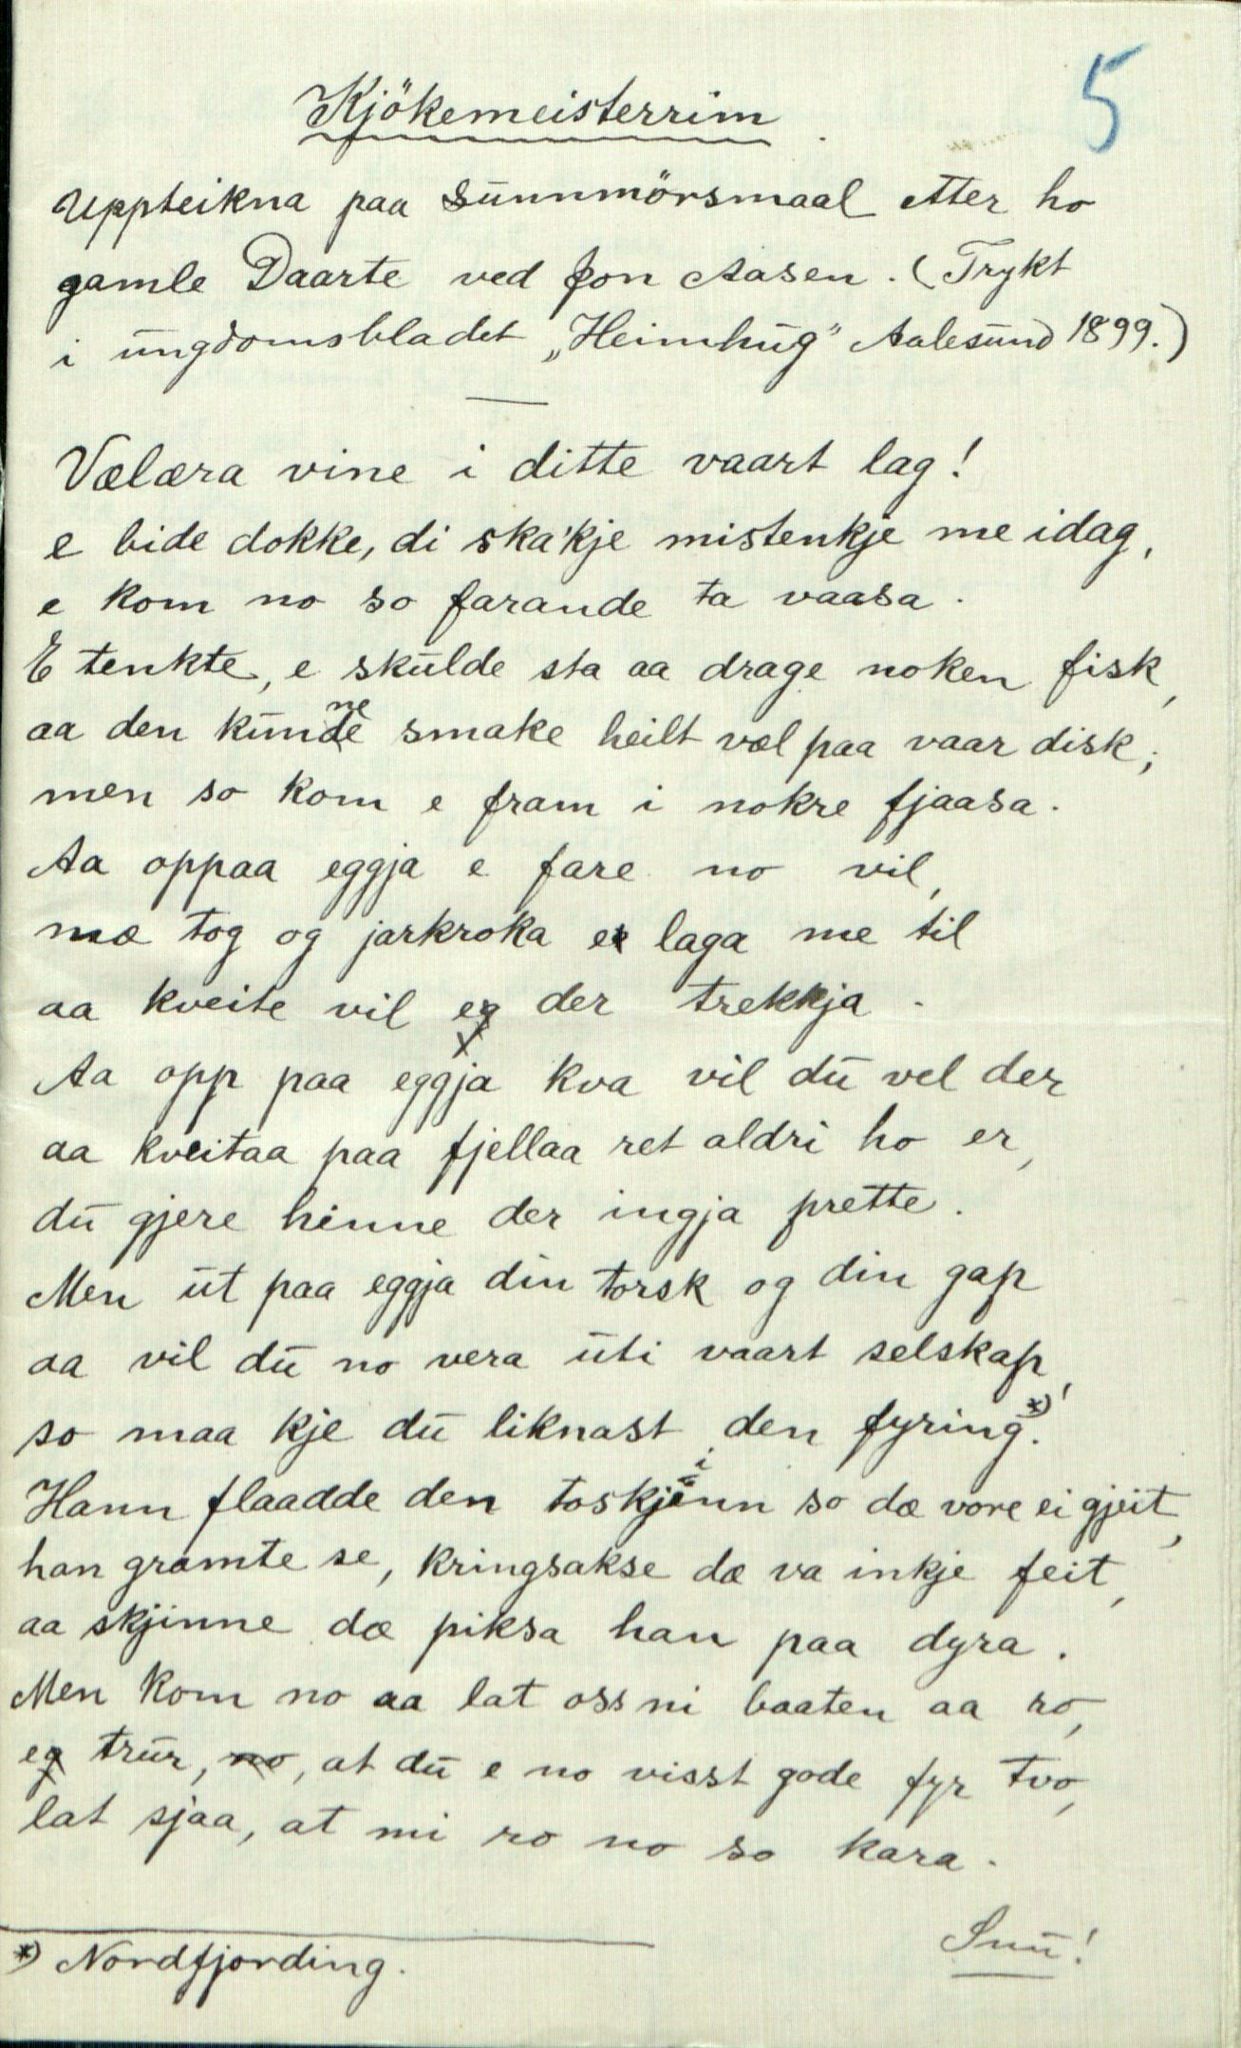 5
Kjökemeisterrim
Uppteikna paa Sunnmörsmaal etter ho
gamle Daarte ved Jon Aasen. (Trykt
i ungdomsbladet „Heimhug" Aalesund 1899.)
Vælæra vine i ditte vaart lag!
e bide dokke, di ska'kje mistenkje me idag,
e kom no so farande ta vaasa.
E tenkte, e skulde sta aa drage noken fisk,
aa den kunne smake heilt væl paa vaar disk;
men so kom e fram i nokre fjaasa.
Aa oppaa eggja e fare no vil,
mæ tog og jarkroka e laga me til
aa kveite vil e der trekkja.
Aa opp paa eggja kva vil du vel der
aa kveitaa paa fjellaa ret aldri ho er,
du gjere hinne der ingja prette.
Men ut paa eggja din torsk og din gap
aa vil du no vera uti vaart selskap,
so maa kje du liknast den fyring*)!
Hann flaadde den toskjinn so dæ vore ei gjeit,
han gramte se, kringsakse dæ va inkje feit,
aa skjinne dæ piksa han paa dyra.
Men kom no aa lat oss ni baaten aa ro,
e trur, no, at du e no visst gode fyr tvo,
lat sjaa, at mi ro no so kara.
Snu!
*) Nordfjording.